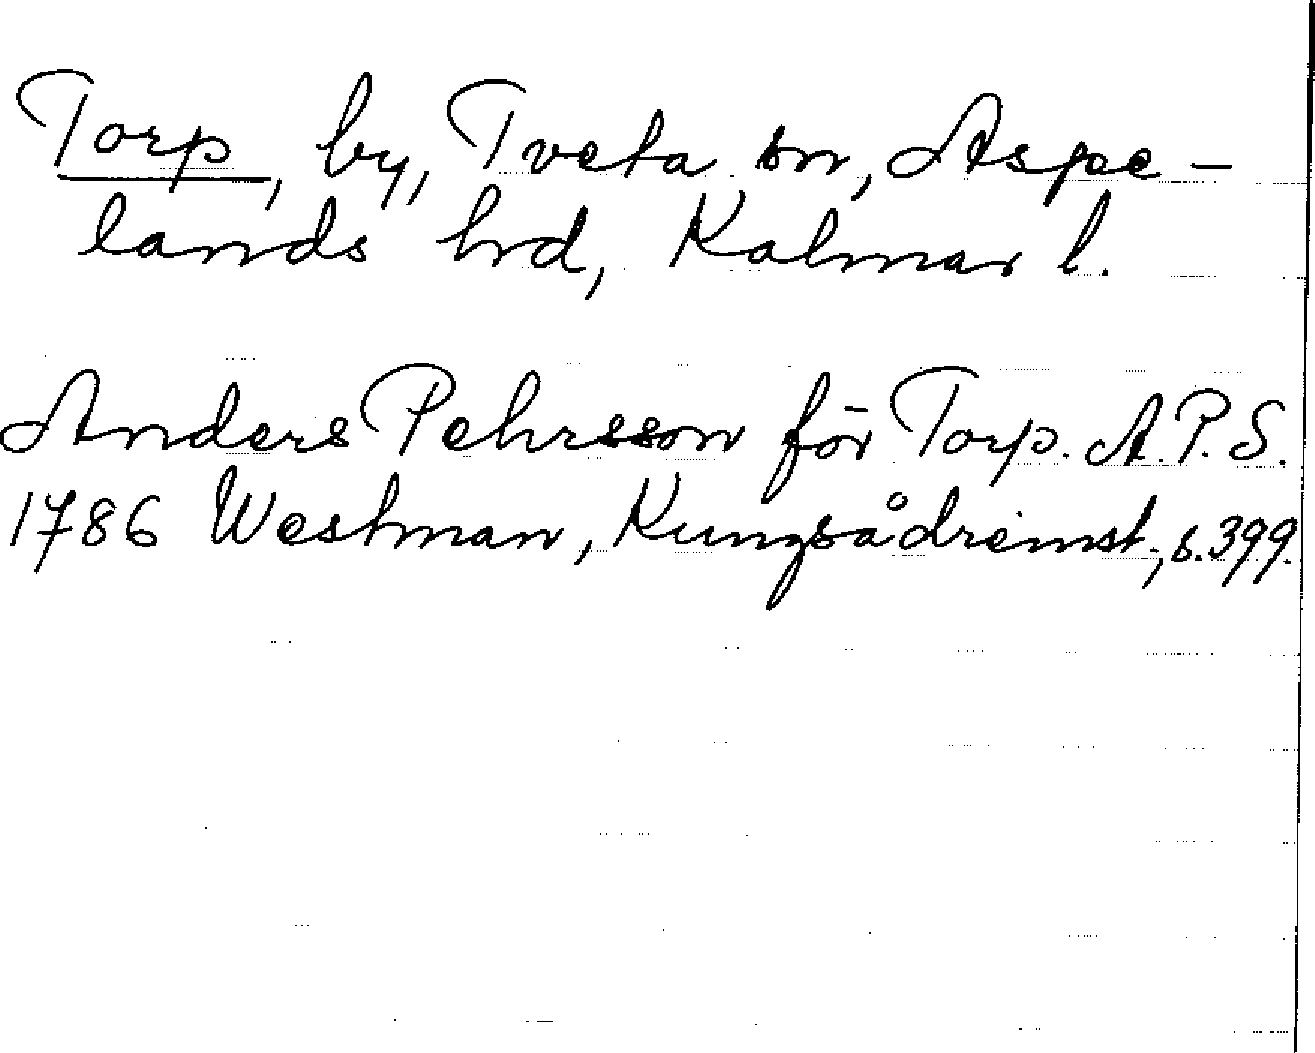 Torp, by, Tveta sn, Aspe-
lands hrd, Kalmar l.
Anders Pehrsson för Torp. A.P.S.
1786 Westman, Kungsådreinst., s.399.